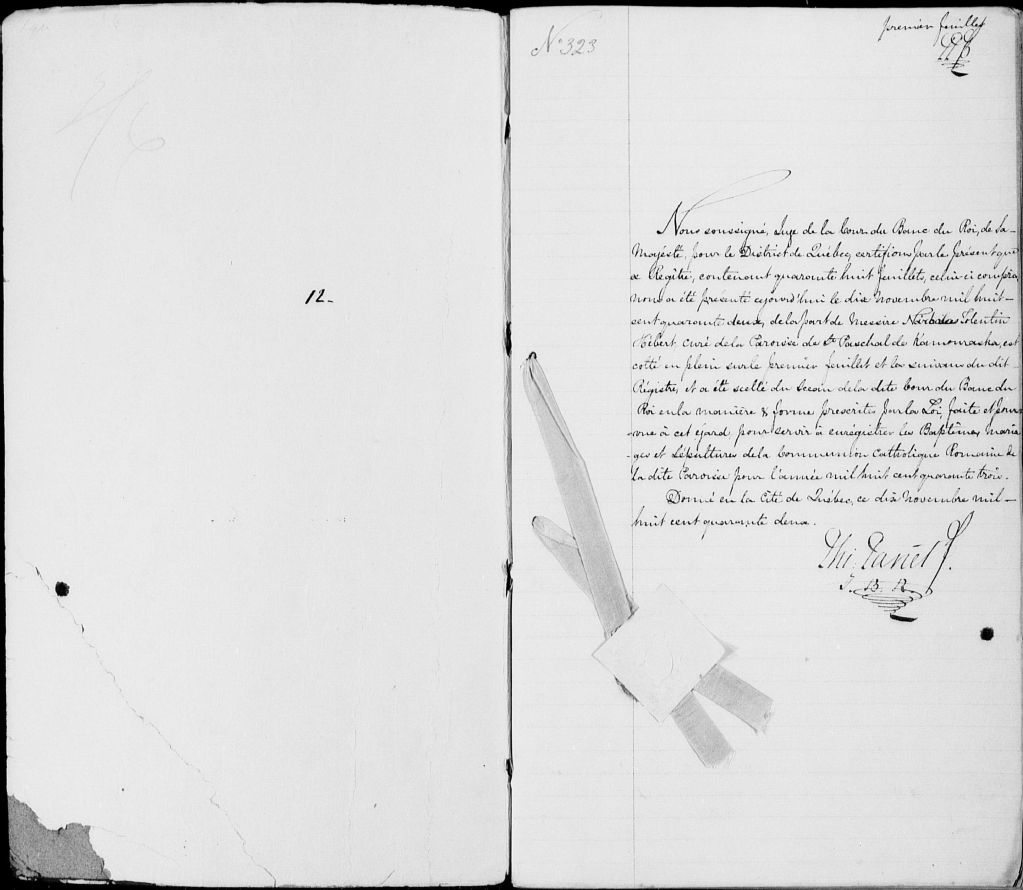 12-
N° 323
premier feuillet
Nous soussigné, Juge de la Cour du Banc du Roi, de Sa-
Majesté, pour le District de Québec, certifions par le présent que
ce Régître, contenant quarante huit feuillets, celui-ci compris,
nous a été présenté cejourd'hui le dix novembre mil huit-
cent quarante deux, de la part de Messire Tolentin
Hébert, curé de la Paroisse de St Paschal de Kamouraska, est
cotté en plein sur le premier feuillet et les suivans du dit-
Régistre, et a été scellé du Sceau de la dite Cour du Banc du
Roi en la manière & forme prescrites par la Loi, faite et pour-
-vue à cet égard, pour servir à enrégistrer les Baptêmes, Maria
-ges et Sépultures de la Communion Catholique Romaine de
la dite Paroisse pour l'année mil huit cent quarante trois.
Donné en la Cité de Québec, ce dix Novembre mil-
huit cent quarante deux.
Phi. Panet J.
J. B. R.